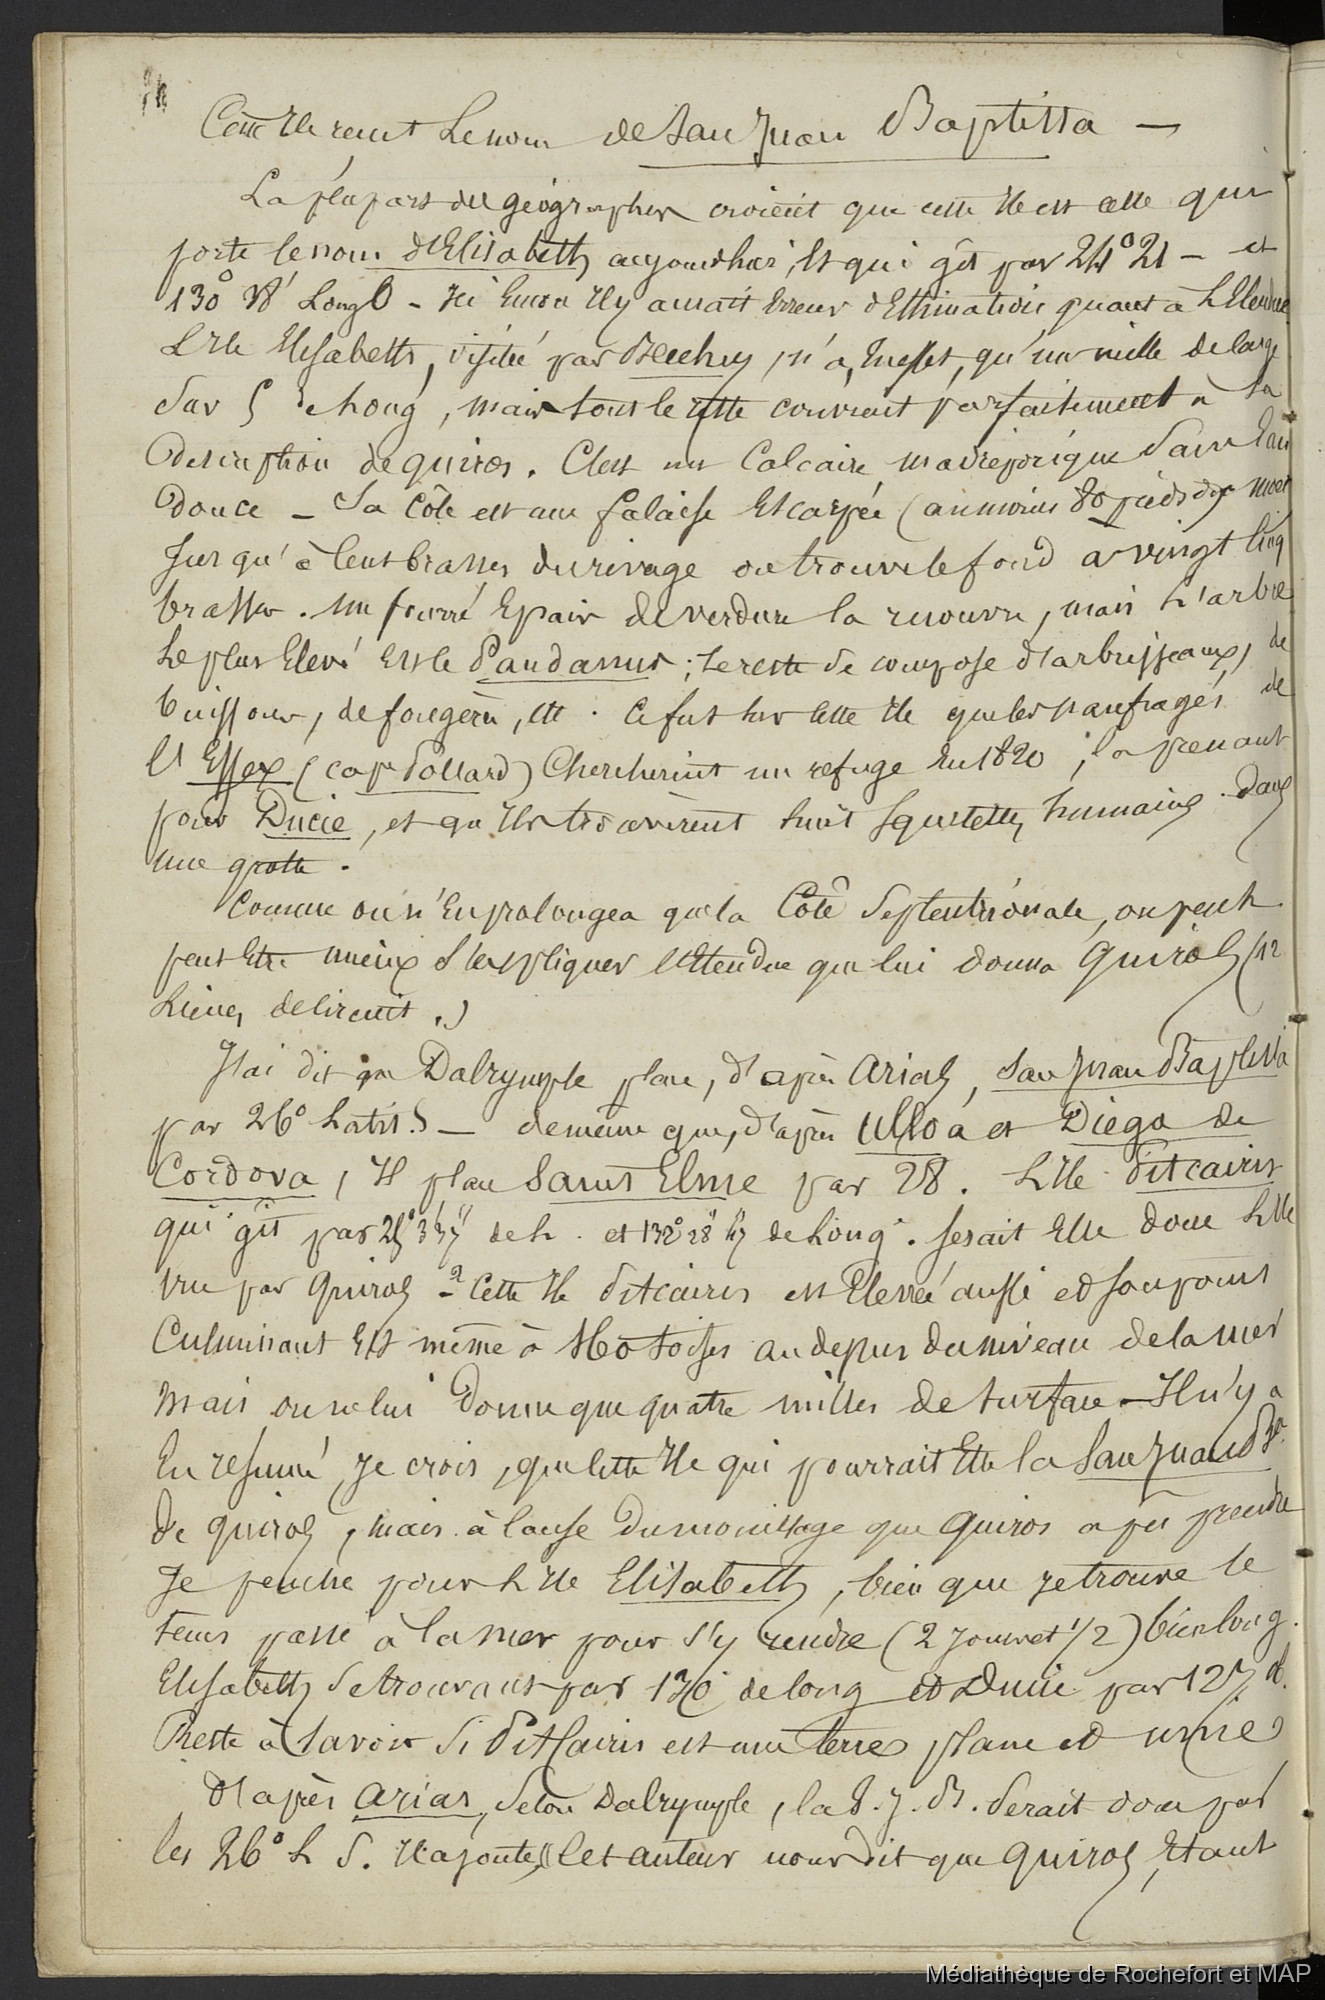 Cette Ile reçut le nom de San Juan Baptista —
La plupart des géographes croient que cette Ile est celle qui
porte le nom d'Elisabeth aujourd'hui, et qui gît par 24° 21 — et
130° 38' Long O - Ici encore Il y aurait Erreur d'Estimation quant à l'Etendue
L'Ile Elisabeth, visitée par Beechey, n'a, En effet, qu'un mille de large
sur 5 de long, mais tout le reste convient parfaitement à la
description de quiros. C'est un Calcaire madréporique sans Eau
douce — Sa Côte est une falaise Escarpée (au moins 80 pieds de
Jusqu'à Cent brasses du rivage on trouve le fond à vingt cinq
brasses. Un fourré Epais de verdure la recouvre, mais l'arbre
le plus Elevé Est le Pandanus ; le reste se compose d'arbrisseaux, de
buissons, de fougères, etc. Ce fut sur cette Ile que les naufragés de
l'Essex (cap. Pollard) Cherchèrent un refuge En 1820, la prenant
pour Ducie, et qu'Ils trouvèrent huit squelettes humains dans
une grotte.
Comme on n'En prolongea que la Côte Septentrionale, on peut
peut Etre mieux s'expliquer l'Etendue que lui donna Quiros (12
lieues de circuit.)
J'ai dit que Dalrymple place, d'après Arias, San Juan Baptista
par 26° Latit. S — de même que, d'après Ulloa et Diego de
Cordova, Il place Saint Elme par 28. L'Ile Pitcairn
qui gît par 25° 3' 37" de L. et 132° 28' de Long. serait Elle donc l'Ile
vue par Quiros ? - Cette Ile Pitcairn est Elevée aussi et son point
Culminant Est même à toises au dessus du niveau de la mer
mais on ne lui donne que quatre milles de surface — Il n'y a
En résumé, Je crois, que cette Ile qui pourrait Etre la San Juan Bta
de Quiros, mais à Cause du mouillage que Quiros a pu prendre
Je penche pour l'Ile Elisabeth, bien que Je trouve le
tems passé à la mer pour s'y rendre (2 jours et 1/2) bien long.
Elisabeth se trouvant par 130 de long et Ducie par 127 O.
Reste à savoir si Pitcairn est une terre plane et unie
D'après Arias, selon Dalrymple, la S. J. B. serait donc par
les 26° L S. Il ajoute, Cet auteur nous dit que Quiros, Etant
Médiathèque de Rochefort et MAP